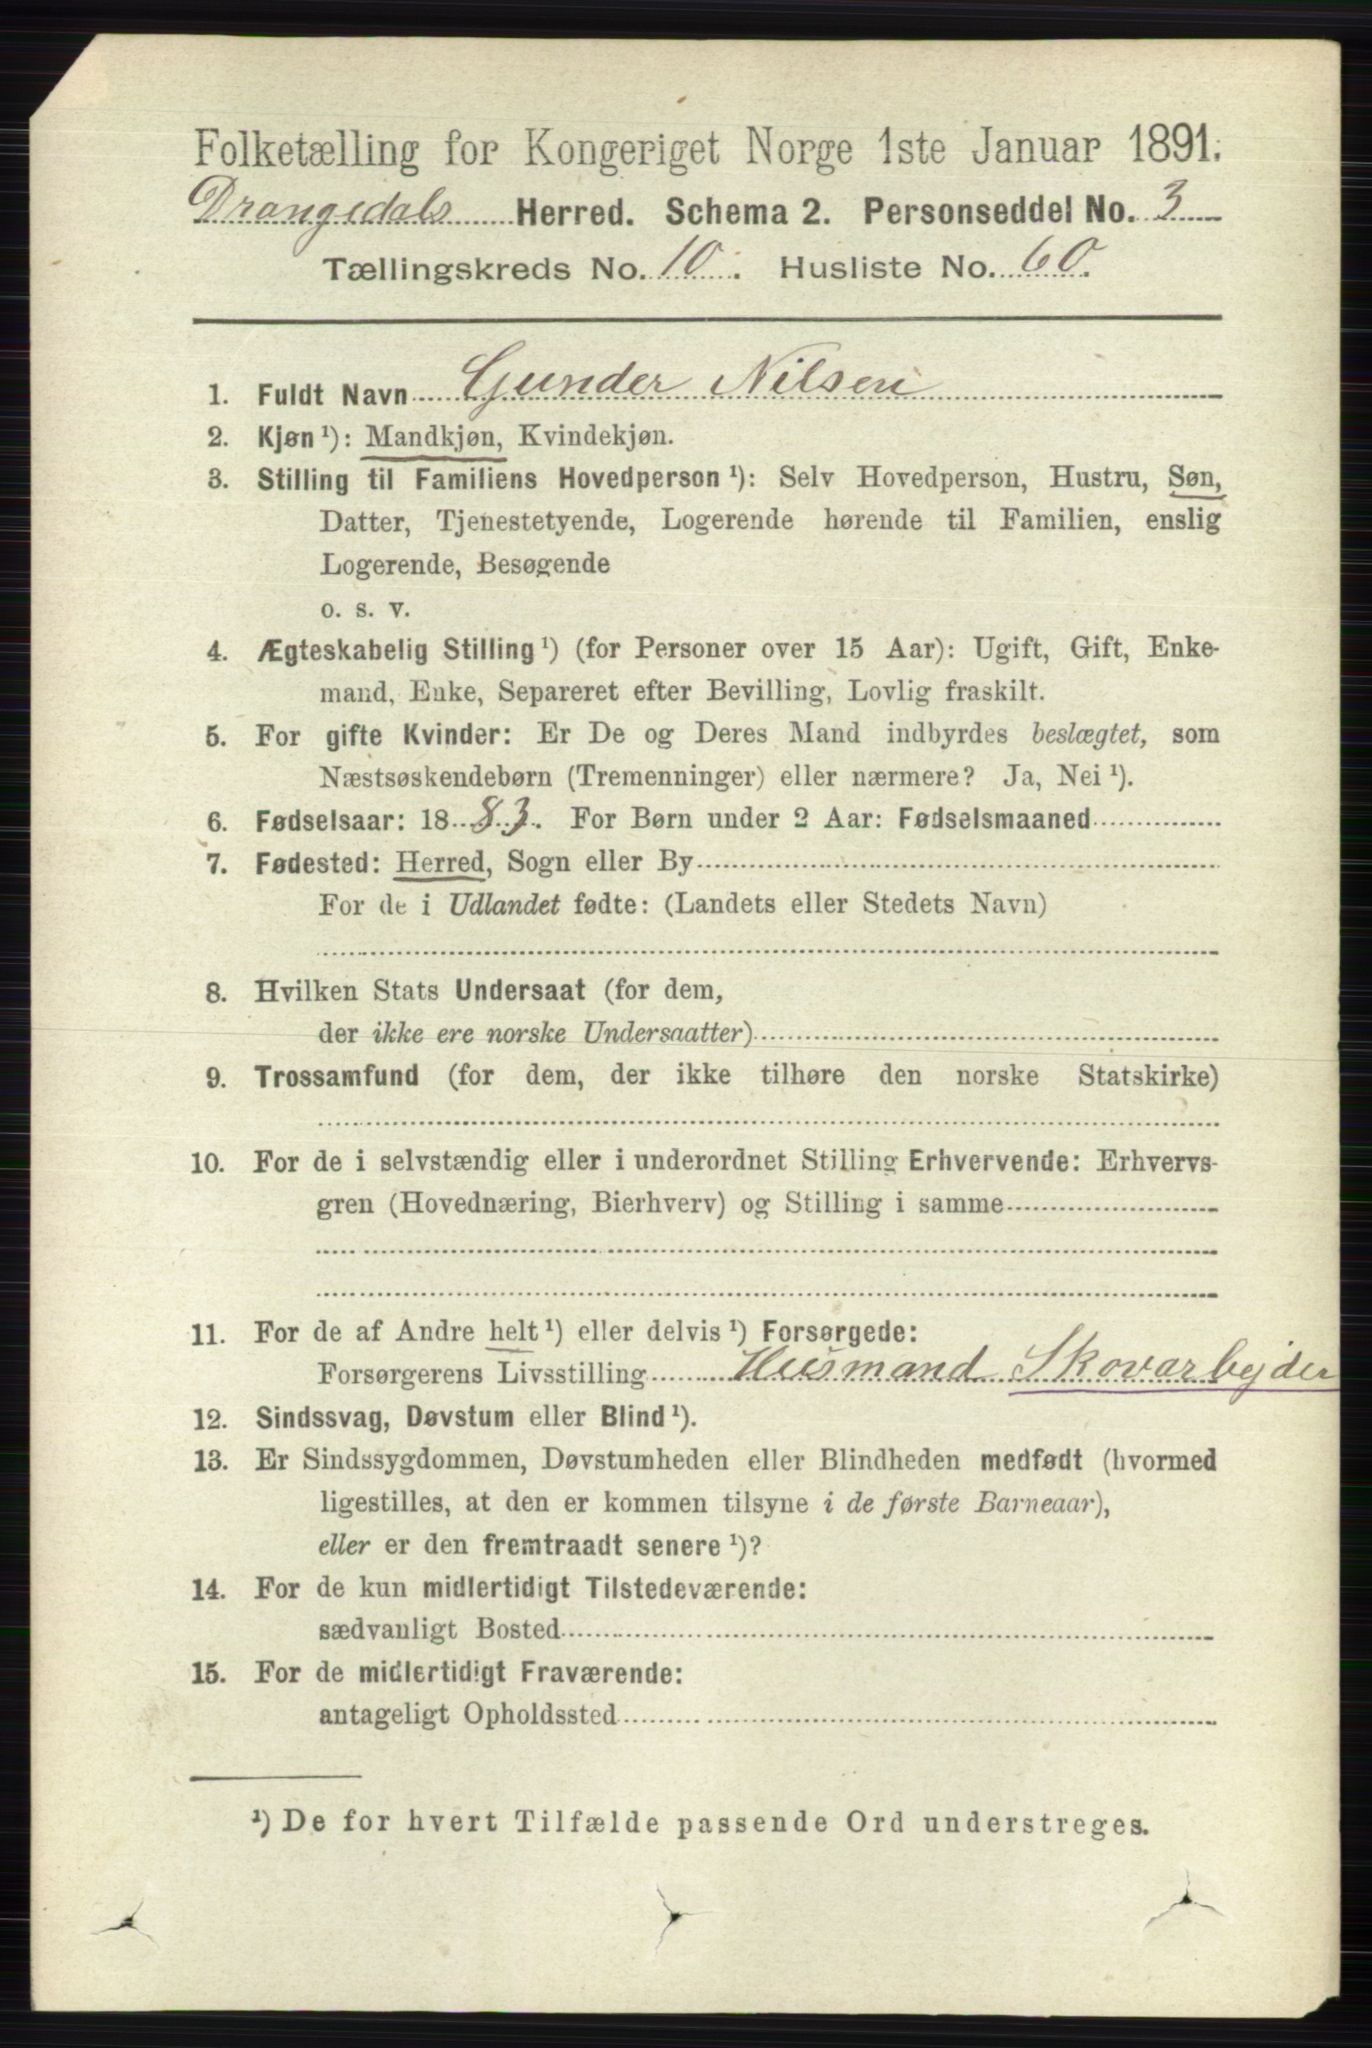 Folketælling for Kongeriget Norge 1ste Januar 1891.
Drangedals Herred. Schema 2. Personseddel No. 3
Tællingskreds No. 10. Husliste No. 60.
1. Fuldt Navn Gunder Nilsen
2. Kjøn ¹): Mandkjøn, Kvindekjøn.
3. Stilling til Familiens Hovedperson ¹): Selv Hovedperson, Hustru, Søn,
Datter, Tjenestetyende, Logerende hørende til Familien, enslig
Logerende, Besøgende
o. s. v.
4. Ægteskabelig Stilling ¹) (for Personer over 15 Aar): Ugift, Gift, Enke-
mand, Enke, Separeret efter Bevilling, Lovlig fraskilt.
5. For gifte Kvinder: Er De og Deres Mand indbyrdes beslægtet, som
Næstsøskendebørn (Tremenninger) eller nærmere? Ja, Nei ¹).
6. Fødselsaar: 1883. For Børn under 2 Aar: Fødselsmaaned
7. Fødested: Herred, Sogn eller By
For de i Udlandet fødte: (Landets eller Stedets Navn)
8. Hvilken Stats Undersaat (for dem,
der ikke ere norske Undersaatter)
9. Trossamfund (for dem, der ikke tilhøre den norske Statskirke)
10. For de i selvstændig eller i underordnet Stilling Erhvervende: Erhvervs-
gren (Hovednæring, Bierhverv) og Stilling i samme
11. For de af Andre helt ¹) eller delvis ¹) Forsørgede:
Forsørgerens Livsstilling Husmand Skovarbejder
12. Sindssvag, Døvstum eller Blind ¹).
13. Er Sindssygdommen, Døvstumheden eller Blindheden medfødt (hvormed
ligestilles, at den er kommen tilsyne i de første Barneaar),
eller er den fremtraadt senere ¹)?
14. For de kun midlertidigt Tilstedeværende:
sædvanligt Bosted
15. For de midlertidigt Fraværende:
antageligt Opholdssted
¹) De for hvert Tilfælde passende Ord understreges.